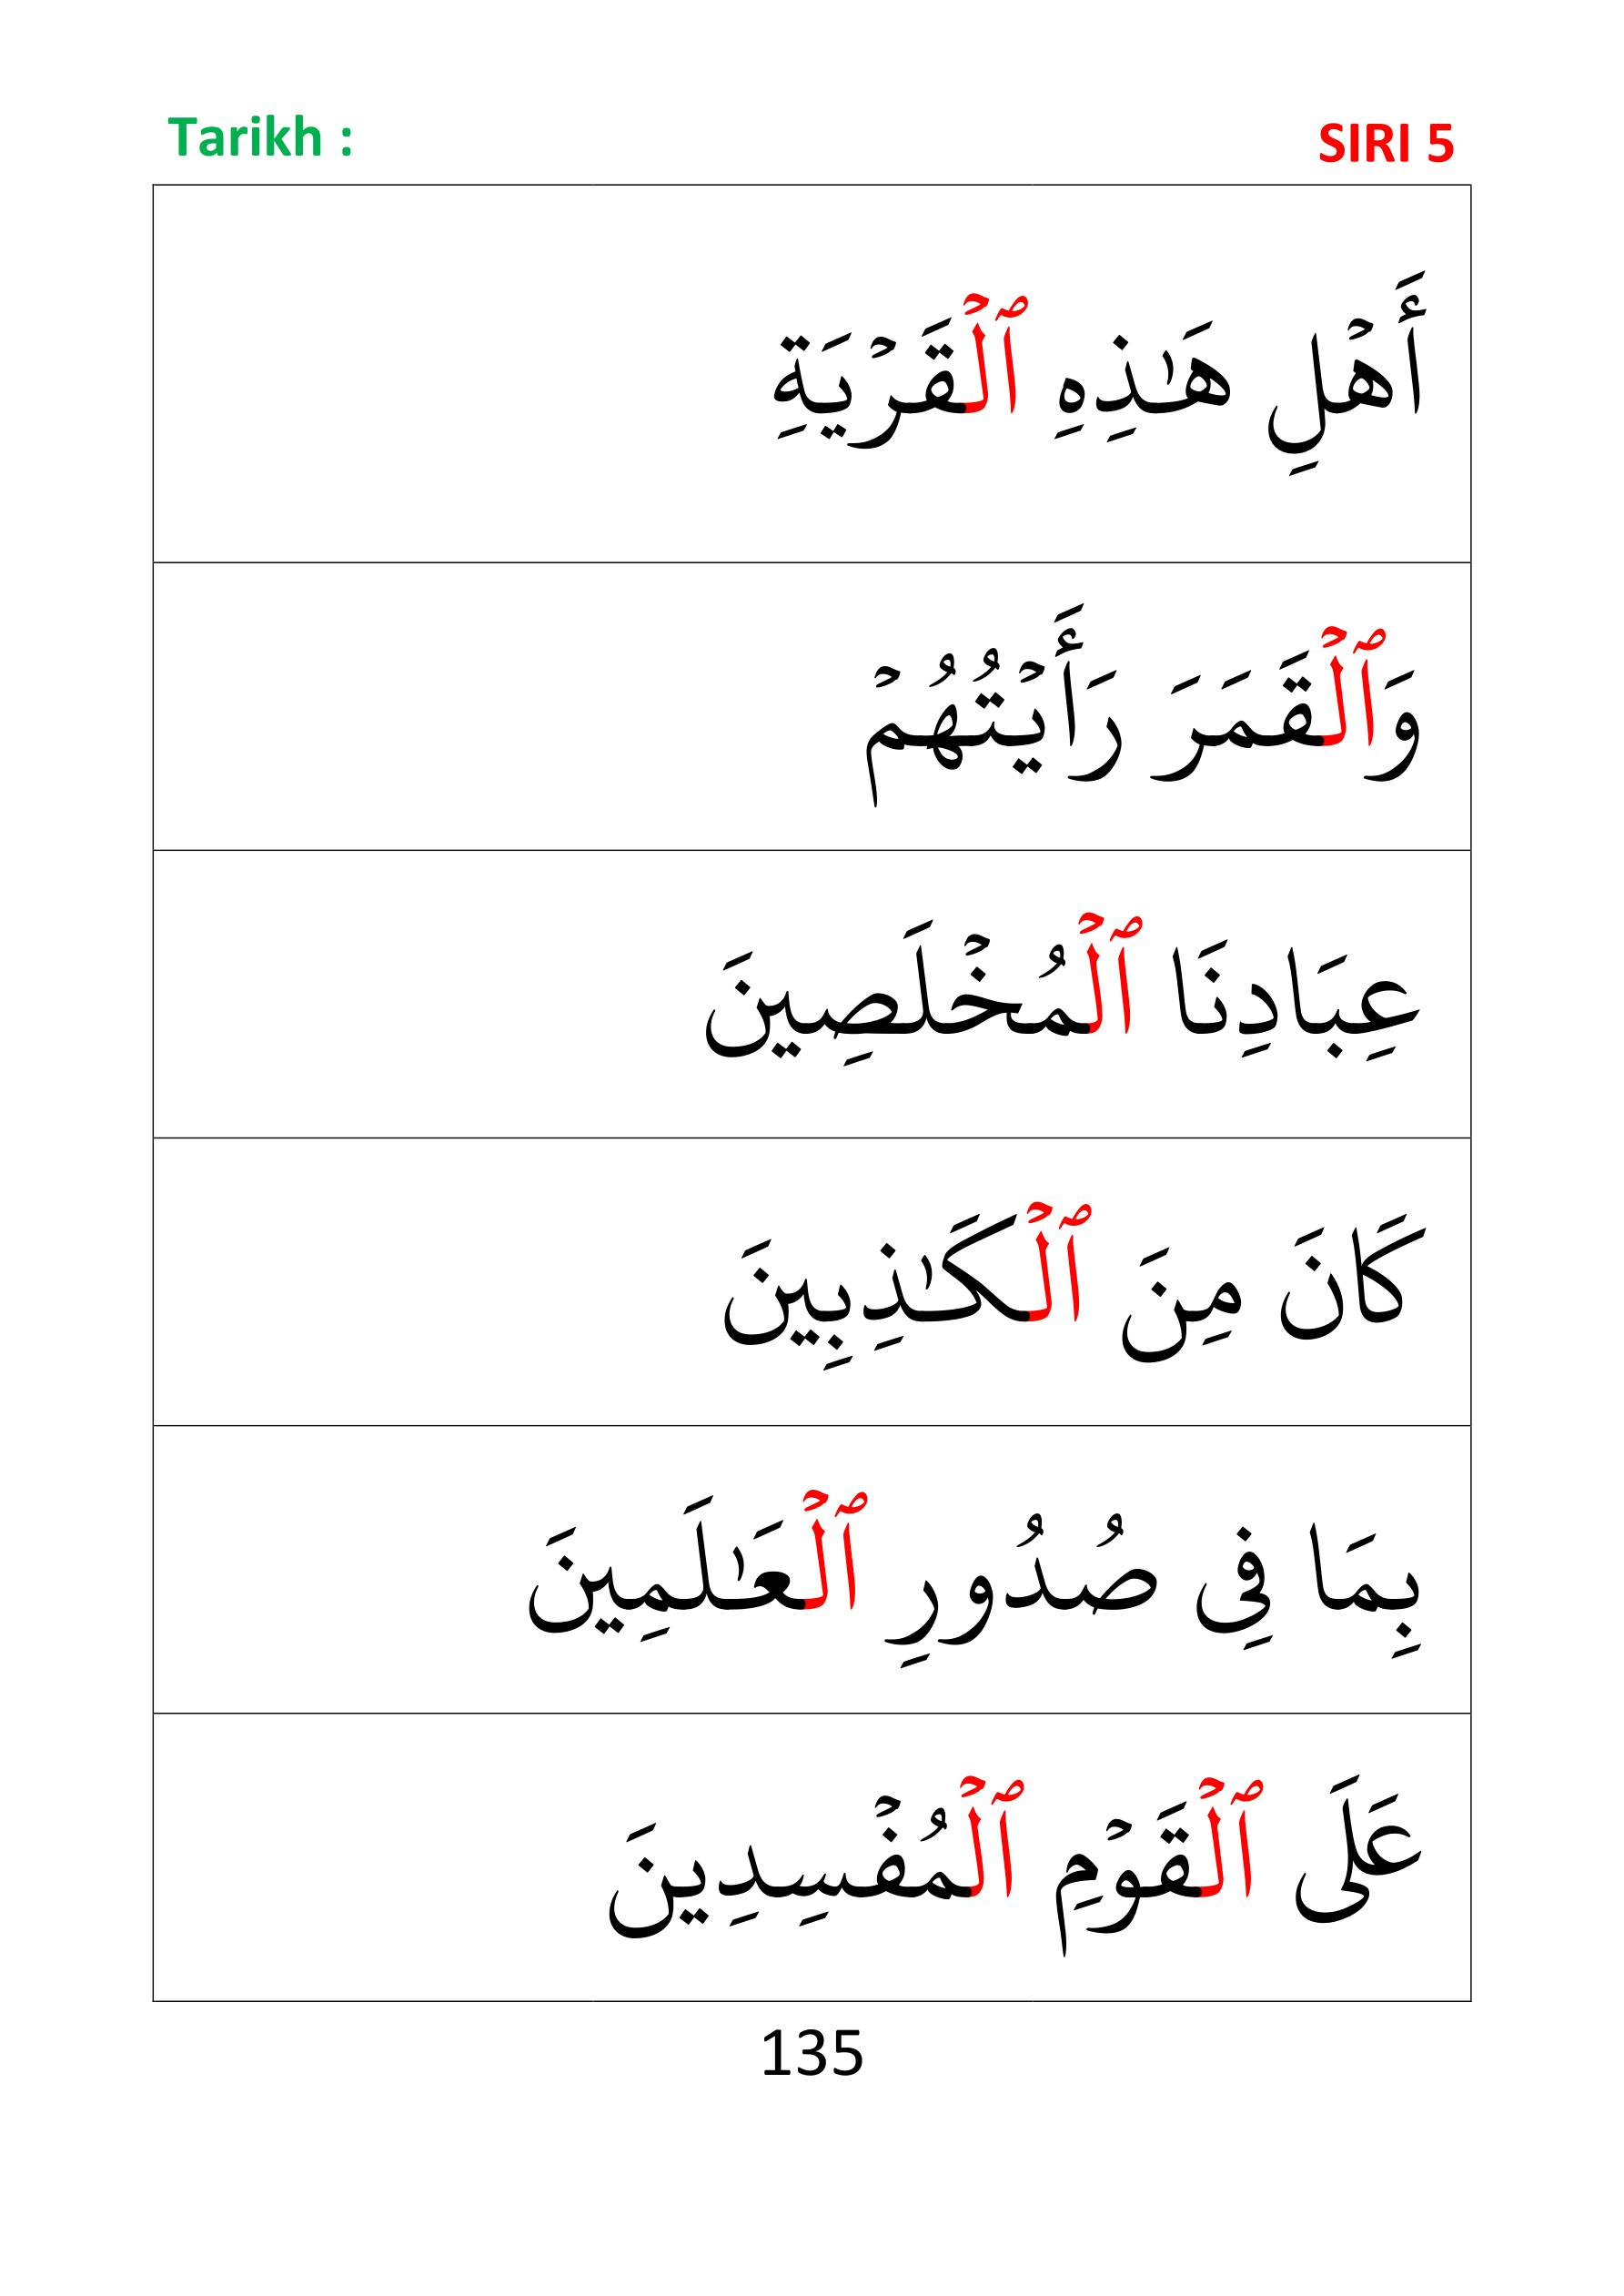 Tarikh :
SIRI 5
أَهۡلِ هَٰذِهِ ٱلۡقَرۡيَةِ
وَٱلۡقَمَرَ رَأَيۡتُهُمۡ
عِبَادِنَا ٱلۡمُخۡلَصِينَ
كَانَ مِنَ ٱلۡكَٰذِبِينَ
بِمَا فِى صُدُورِ ٱلۡعَٰلَمِينَ
عَلَى ٱلۡقَوۡمِ ٱلۡمُفۡسِدِينَ
135